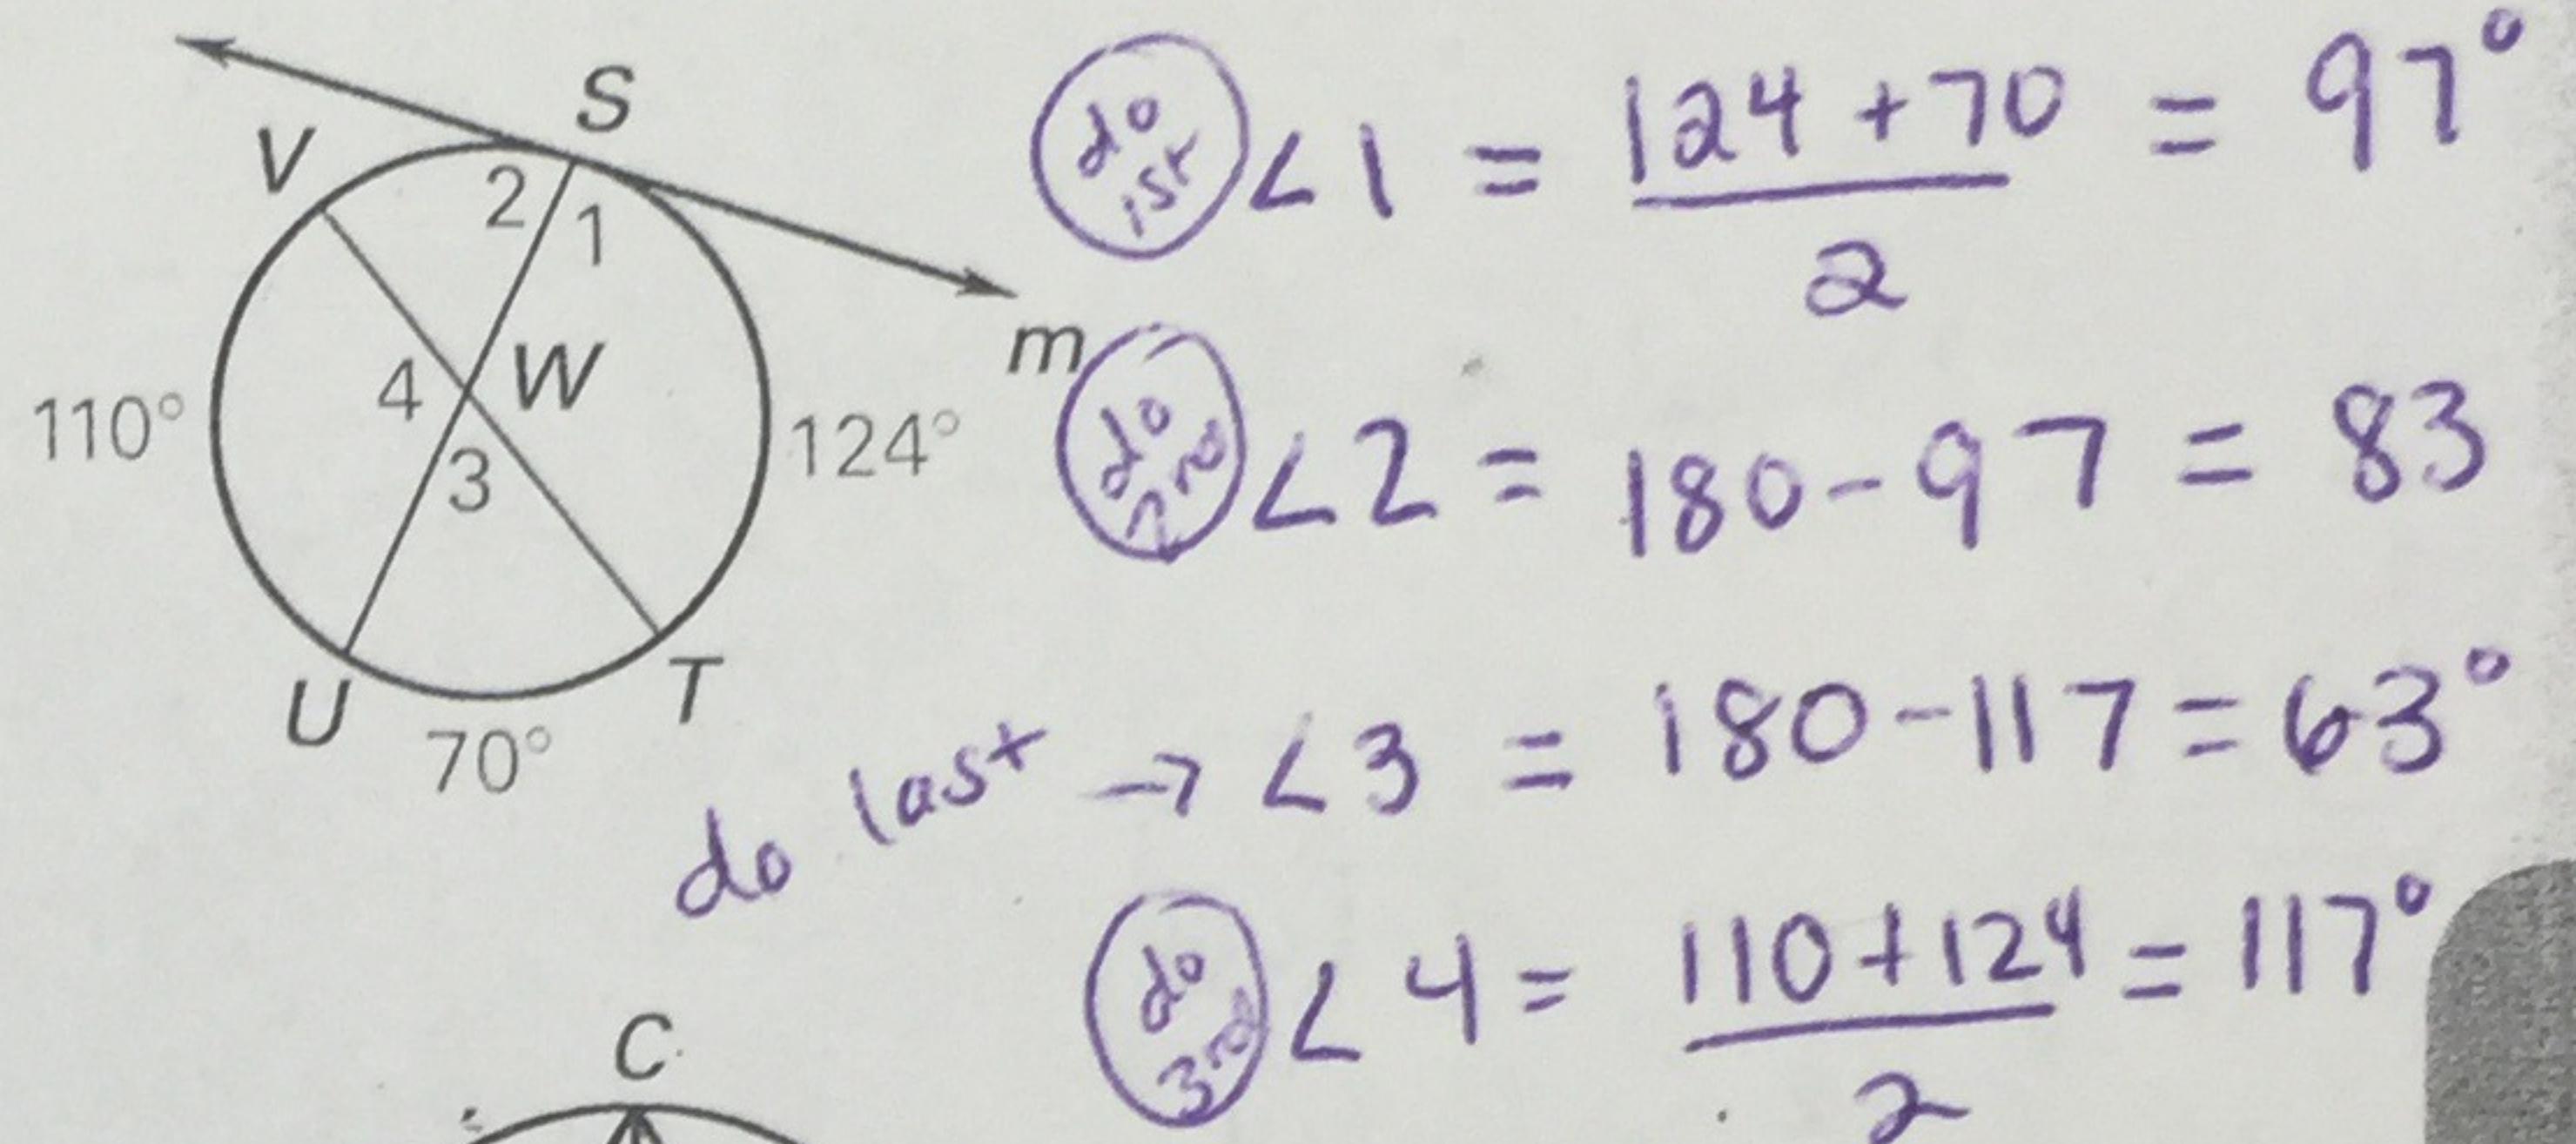 S
V
2
1
m
4
W
3
110°
124°
U
T
70°
C
do 1st ∠1 = (124 + 70)/2 = 97°
do 2nd ∠2 = 180 - 97 = 83
do last → ∠3 = 180 - 117 = 63°
do 3rd ∠4 = (110 + 124)/2 = 117°